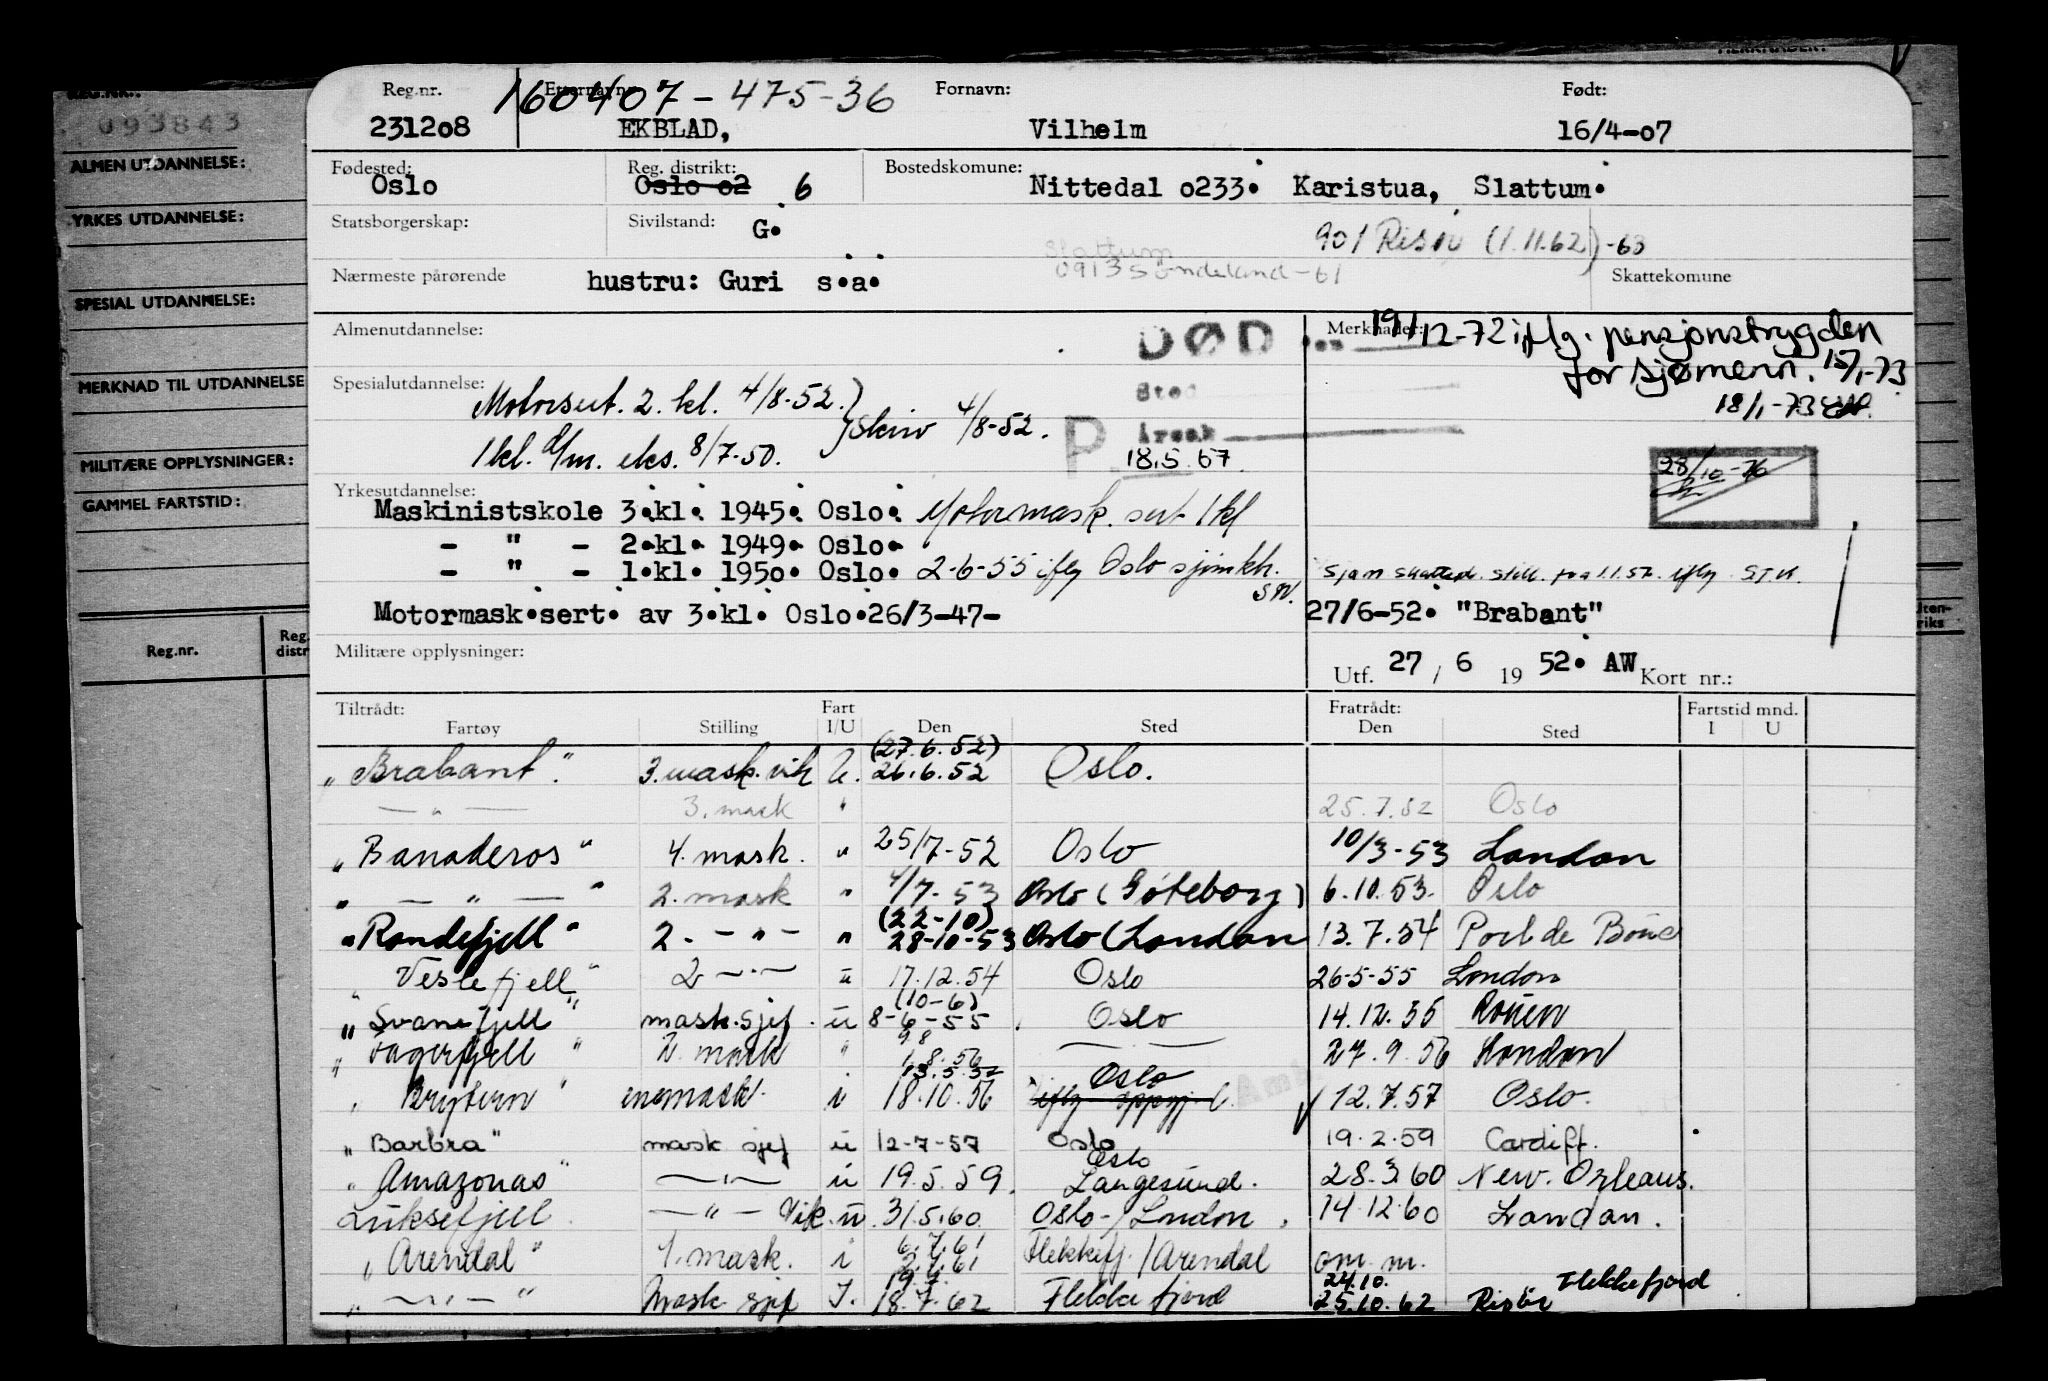 Reg.nr. Etternavn: 160407-475-36 Fornavn: Født:
231208 EKBLAD, Vilhelm 16/4-07
Fødested: Reg. distrikt: Bostedskomune:
Oslo Oslo 02 6 Nittedal 0233. Karistua, Slattum.
Statsborgerskap: Sivilstand: G. 901 Risør (1.11.62)-63
Slattum
0913 Søndeland-61
Nærmeste pårørende hustru: Guri s.a. Skattekomune
Almenutdannelse: DØD Merknader: 19/12-72 iflg. pensjonstrygden
for sjømenn. 15/1-73
18/1-73
Spesialutdannelse: Sted
Motorsert. 2. kl. 4/8-52.) skriv 4/8-52.
1kl. d/m. eks. 8/7-50.
P Årsak
18.5.67
28/10-76
Yrkesutdannelse:
Maskinistskole 3.kl. 1945. Oslo. Motormask. sert 1kl
- " - 2.kl. 1949. Oslo.
- " - 1.kl. 1950. Oslo. 2-6-55 iflg Oslo sjømkk.
Sjøm skatted. still. fra 1.1.57. iflg.
Motormask.sert. av 3.kl. Oslo.26/3-47- 27/6-52. "Brabant"
Militære opplysninger: Utf. 27 / 6 19 52. AW Kort nr.:
Tiltrådt: Fratrådt: Fartstid mnd.
Fartøy Stilling Fart I/U Den Sted Den Sted I U
"Brabant" 3. mask. vik U. (27.6.52) 26.6.52 Oslo.
— " — 3. mask " 25.7.52 Oslo
"Banaderos" 4. mask. " 25/7-52 Oslo 10/3-53 London
" — " — " 2. mask " 4/7-53 Oslo (Göteborg) 6.10.53. Oslo
"Rondefjell" 2. - " - " (22-10) 28-10-53 Oslo (London 13.7.54 Port de Bouc
"Veslefjell" 2 - " - u 17.12.54 Oslo 26-5-55 London
"Svanefjell" mask.sjef. u (10-6) 8-6-55 Oslo 14.12.55 Rouen
"Fagerfjell" 2. mask " 9.8 1.8.56 — " — 27.9.56 London
"Brytern" enemask. i 13.5.57 18.10.56 Oslo iflg oppgj. 12.7.57 Oslo.
"Barbra" mask sjef u 12-7-57 Oslo 19.2.59 Cardiff.
"Amazonas" — " — u 19.5.59. Oslo Langesund. 28.3.60 New. Orleans.
Luksefjell — " — Vik. u. 31.5.60 Oslo-/London. 14.12.60 London.
"Arendal" 1. mask. i 6.7.61 2.7.61 Flekkefj./Arendal om. m.
" — " — " Mask. sjef I. 19.7. 18.7.62 Flekkefjord 24.10. 25.10.62 Risør Flekkefjord
093843
ALMEN UTDANNELSE:
YRKES UTDANNELSE:
SPESIAL UTDANNELSE:
MERKNAD TIL UTDANNELSE
MILITÆRE OPPLYSNINGER:
GAMMEL FARTSTID:
Reg.nr. Reg. distr